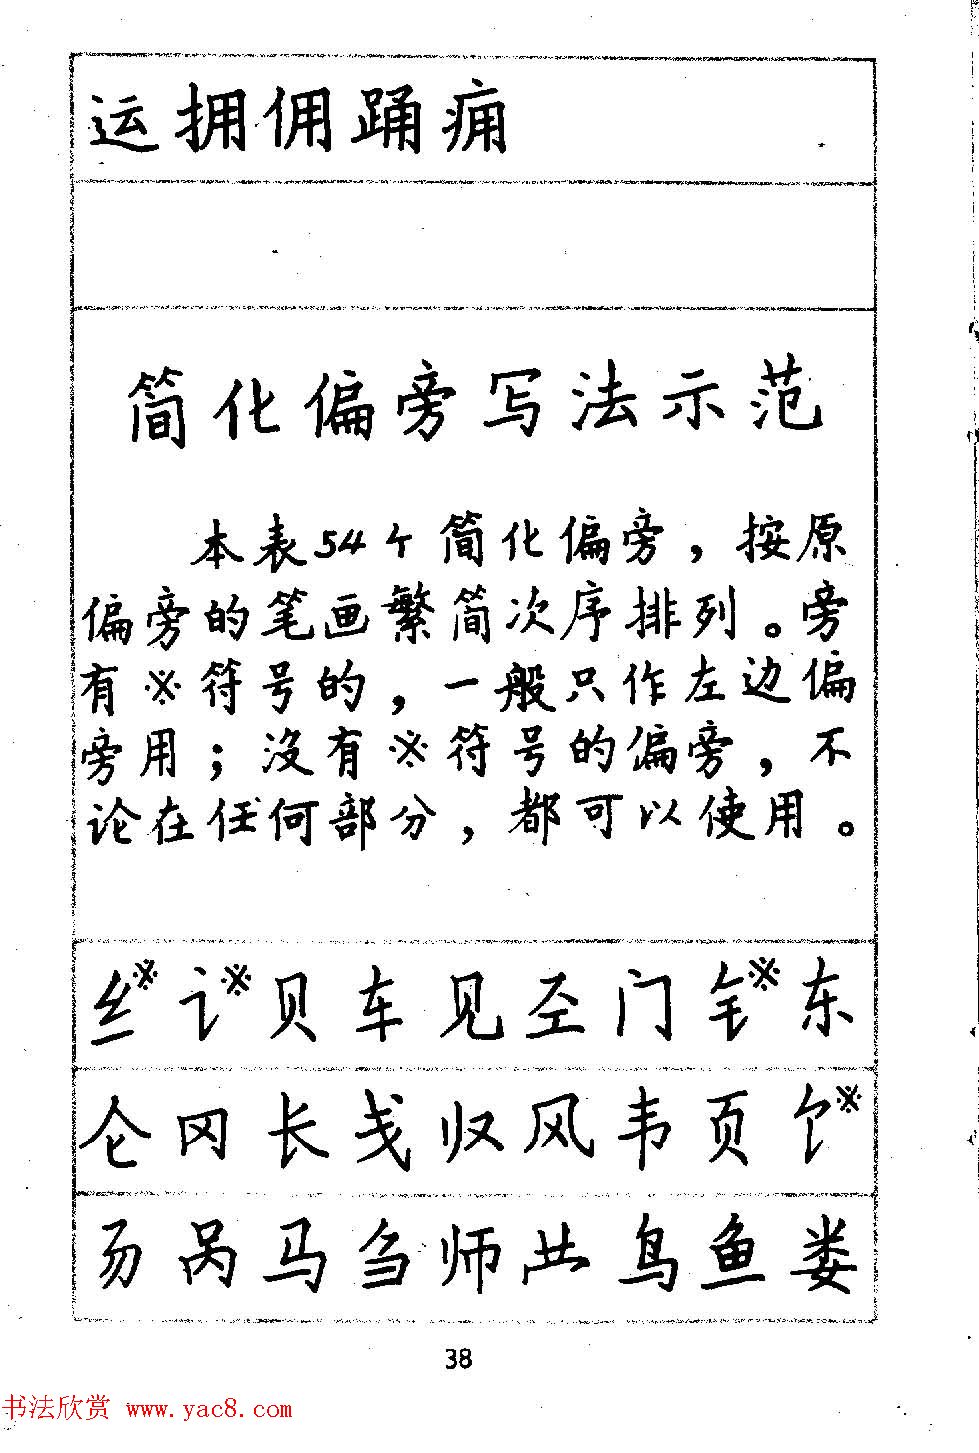 运拥佣踊痈
简化偏旁写法示范
本表54个简化偏旁，按原
偏旁的笔画繁简次序排列。旁
有※符号的，一般只作左边偏
旁用；没有※符号的偏旁，不
论在任何部分，都可以使用。
纟※讠※贝车见圣门钅※东
仑冈长戋归风韦页饣※
㐆呙马刍师㡭鸟鱼娄
38
书法欣赏 www.yac8.com